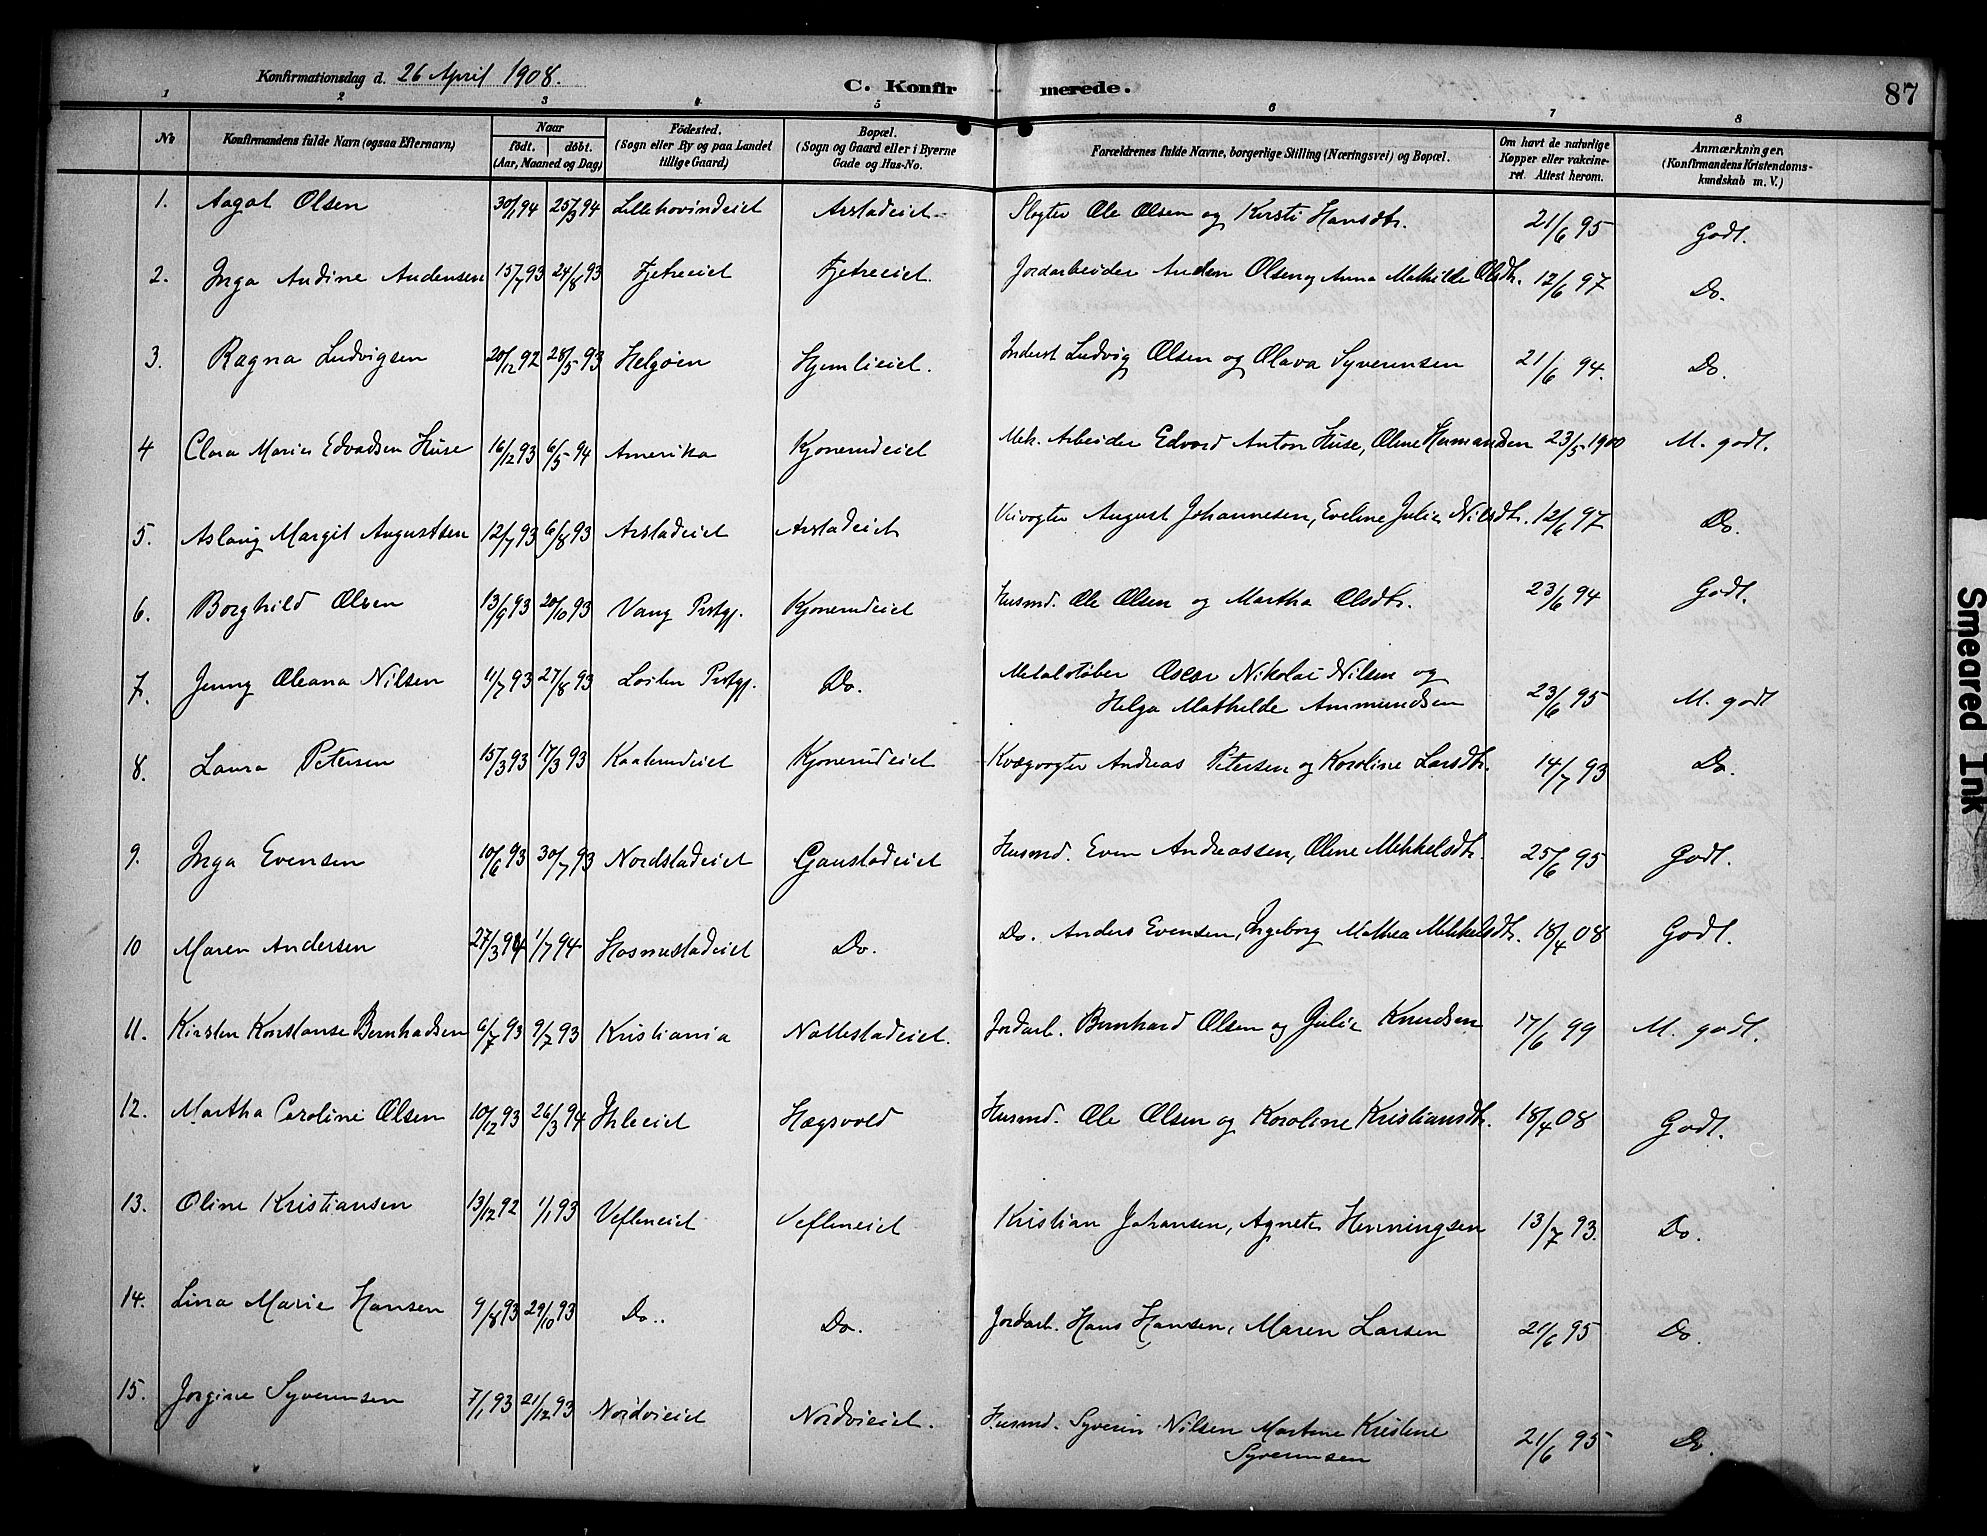 Konfirmationsdag d. 26 April 1908.
C. Konfirmerede.
87
1 2 3 4 5 6 7 8
No
Konfirmandens fulde Navn (ogsaa Efternavn)
Naar
födt. döbt.
(Aar, Maaned og Dag)
Födested.
(Sogn eller By og paa Landet
tillige Gaard)
Bopæl.
(Sogn og Gaard eller i Byerne
Gade og Hus-No.
Forældrenes fulde Navne, borgerlige Stilling (Næringsvei) og Bopæl.
Om havt de naturlige
Kopper eller vakcine-
ret. Attest herom.
Anmærkninger,
(Konfirmandens Kristendoms-
kundskab m. V.)
1. Aagot Olsen 30/1 94 25/3 94 Lillehovindeiet Arstadeiet Slagter Ole Olsen og Kirsti Hansdtr. 21/6 95 Godt.
2. Inga Andine Andensen 15/7 93 24/8 93 Fjetreeiet Fjetreeiet Jordarbeider Anden Olsen og Anna Mathilde Olsdtr. 12/6 97 Do.
3. Ragna Ludvigsen 20/12 92 28/5 93 Helgøen Hjemlieiet. Inderst Ludvig Olsen og Olava Syverinsen 21/6 94. Do.
4 Clara Marie Edvadsen Huse 16/12 93 6/5 94 Amerika Kjonerudeiet Mek. Arbeider Edvard Anton Huse, Oline Hermandsen 23/5 1900 M. godt.
5. Aslaug Margit Augustsen 12/7 93 6/8 93 Arstadeiet Arstadeiet Veivogter August Johannesen, Eveline Julie Nilsdtr. 12/6 97 Do.
6. Borghild Olsen 13/9 93 20/10 93 Vang Prstgj. Kjonerudeiet Husmd. Ole Olsen og Martha Olsdtr. 23/6 94 Godt.
7. Jenny Oleana Nilsen 11/7 93 27/8 93 Løiten Prstgj. Do. Metalstøber Oscar Nikolai Nilsen og
Helga Mathilde Ammundsen 23/6 95 M. godt
8. Laura Petersen 15/3 93 17/3 93 Kaalerudeiet Kjonerudeiet Kvægvogter Andreas Petersen og Karoline Larsdtr. 14/7 93 Do.
9. Inga Evensen 10/6 93 30/7 93 Nordstadeiet Gaustadeiet Husmd. Even Andreassen, Oline Mikkelsdtr. 25/6 95 Godt.
10 Maren Andersen 27/3 94 1/7 94 Hosmestadeiet Do. Do. Anders Evensen, Ingeborg Mathea Mikkelsdtr. 18/4 08 Godt.
11. Kirsten Konstanse Bernhadsen 6/7 93 9/7 93 Kristiania Nottestadeiet. Jordarb. Bernhard Olsen og Julie Knudsen 17/6 99 M. godt.
12. Martha Caroline Olsen 10/12 93 26/3 94 Ihleeiet Hægsvold Husmd. Ole Olsen og Karoline Kristiansdtr. 18/4 08 Godt.
13. Oline Kristiansen 13/12 92 1/1 93 Vefleneiet Vefleneiet Kristian Johansen, Agnete Henningsen 13/7 93. Do.
14. Lina Marie Hansen 9/8 93 29/10 93 Do. Do. Jordarb. Hans Hansen, Maren Larsen 21/6 95 Do.
15. Jorgine Syverinsen 7/1 93 21/12 93 Nordvieiet Nordvieiet. Husmd. Syverin Nilsen Martine Kristine
Syverinsen 21/6 95 Do.
Smeared Ink